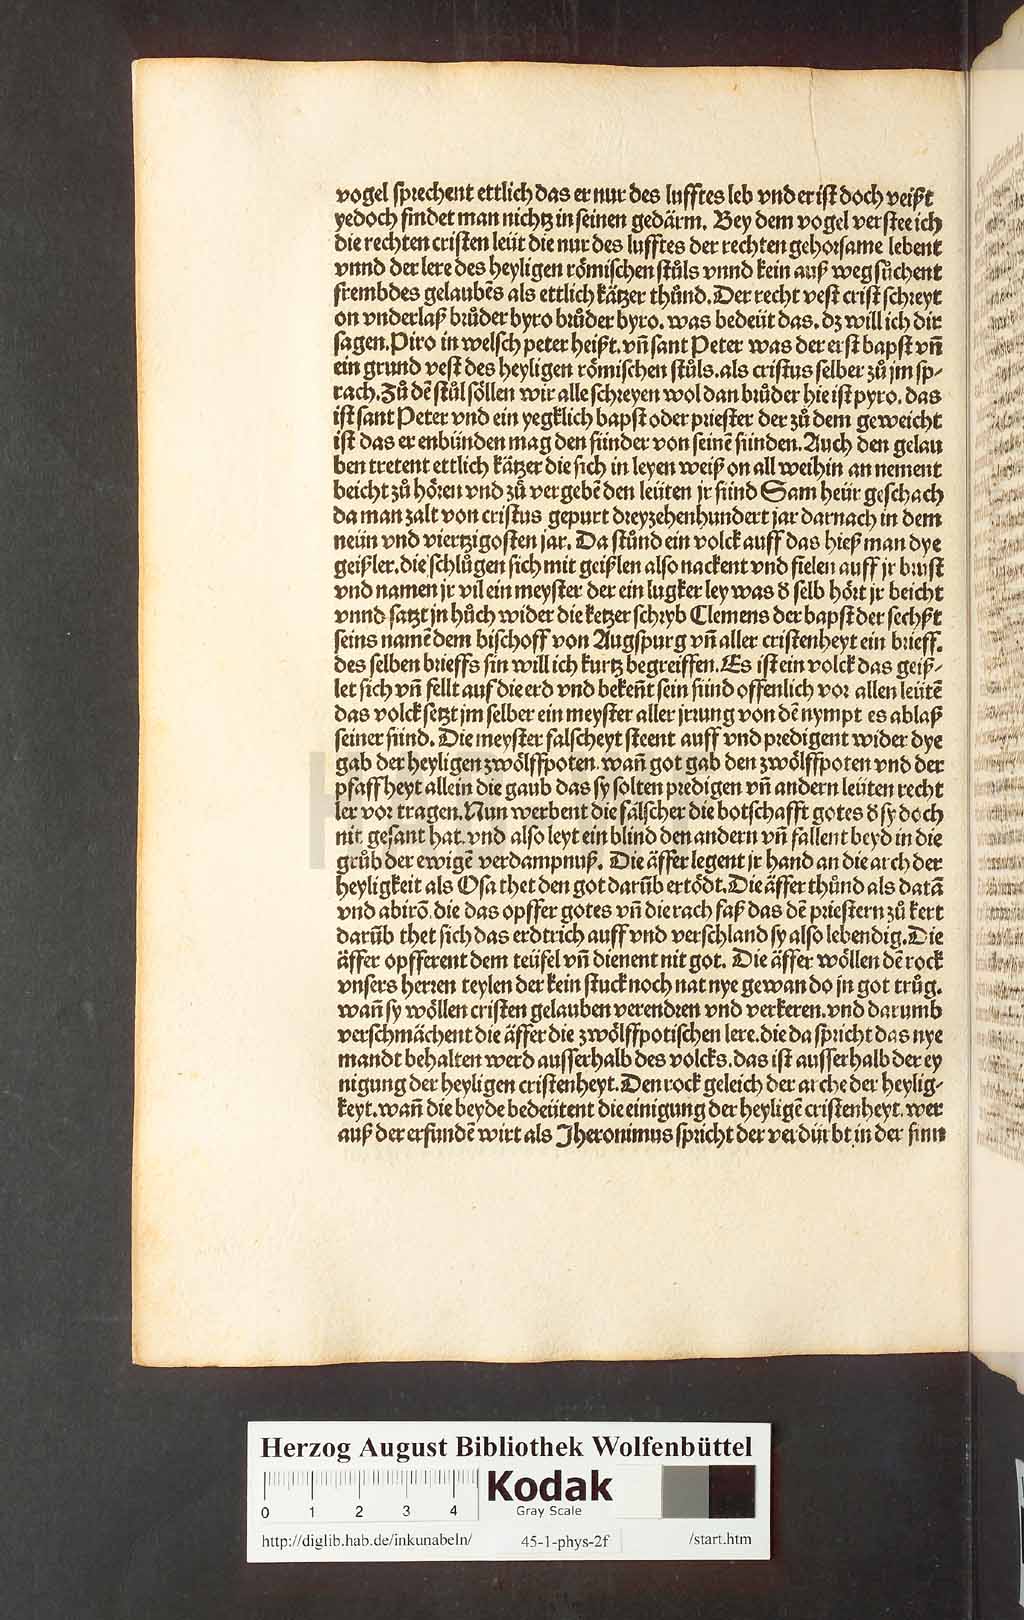 vogel sprechent ettlich das er nur des lufftes leb vnd er ist doch veißt
yedoch findet man nichtz in seinen gedärm. Bey dem vogel verstee ich
die rechten cristen leüt die nur des lufftes der rechten gehorsame lebent
vnnd der lere des heyligen römischen stůls vnnd kein auß weg sůchent
frembdes gelaubēs als ettlich kätzer thůnd. Der recht vest crist schreyt
on vnderlaß brůder byro brůder byro. was bedeüt das. dz will ich dir
sagen. Piro in welsch peter heißt. vn̄ sant Peter was der erst bapst vn̄
ein grund vest des heyligen römischen stůls. als cristus selber zů jm sp-
rach. Zů dē stůl söllen wir alle schreyen wol dan brůder hie ist pyro. das
ist sant Peter vnd ein yegklich bapst oder priester der zů dem geweicht
ist das er enbünden mag den sünder von seinē sünden. Auch den gelau
ben tretent ettlich kätzer die sich in leyen weiß on all weihin an nement
beicht zů hören vnd zů vergebē den leüten jr sünd Sam heür geschach
da man zalt von cristus gepurt dreyzehenhundert jar darnach in dem
neün vnd viertzigosten jar. Da stůnd ein volck auff das hieß man dye
geißler. die schlůgen sich mit geißlen also nackent vnd fielen auff jr brust
vnd namen jr vil ein meyster der ein lugker ley was d̓ selb hört jr beicht
vnnd satzt jn bůch wider die ketzer schryb Clemens der bapst der sechßt
seins namē dem bischoff von Augspurg vn̄ aller cristenheyt ein brieff.
des selben brieffs sin will ich kurtz begreiffen. Es ist ein volck das geiß-
let sich vn̄ fellt auf die erd vnd bekēnt sein sünd offenlich vor allen leütē
das volck setzt jm selber ein meyster aller jrrung von dē nympt es ablaß
seiner sünd. Die meyster falscheyt steent auff vnd predigent wider dye
gab der heyligen zwölffpoten. wan̄ got gab den zwölffpoten vnd der
pfaffheyt allein die gaub das sy solten predigen vn̄ andern leüten recht
ler vor tragen. Nun werbent die fälscher die botschafft gotes d̓ sy doch
nit gesant hat. vnd also leyt ein blind den andern vn̄ fallent beyd in die
grůb der ewigē verdampnuß. Die äffer legent jr hand an die arch der
heyligkeit als Osa thet den got darūb ertödt. Die äffer thůnd als datā
vnd abirō. die das opffer gotes vn̄ die rach faß das dē priestern zů kert
darūb thet sich das erdtrich auff vnd verschland sy also lebendig. Die
äffer opfferent dem teüfel vn̄ dienent nit got. Die äffer wöllen dē rock
vnsers herren teylen der kein stuck noch nat nye gewan do jn got trůg.
wan̄ sy wöllen cristen gelauben verendren vnd verkeren. vnd darumb
verschmächent die äffer die zwölffpotischen lere. die da spricht das nye
mandt behalten werd ausserhalb des volcks. das ist ausserhalb der ey
nigung der heyligen cristenheyt. Den rock geleich der arche der heylig-
keyt. wan̄ die beyde bedeütent die einigung der heyligē cristenheyt. wer
auß der erfundē wirt als Jheronimus spricht der verdürbt in der sinn
Herzog August Bibliothek Wolfenbüttel
0 1 2 3 4
Kodak
Gray Scale
http://diglib.hab.de/inkunabeln/ 45-1-phys-2f /start.htm